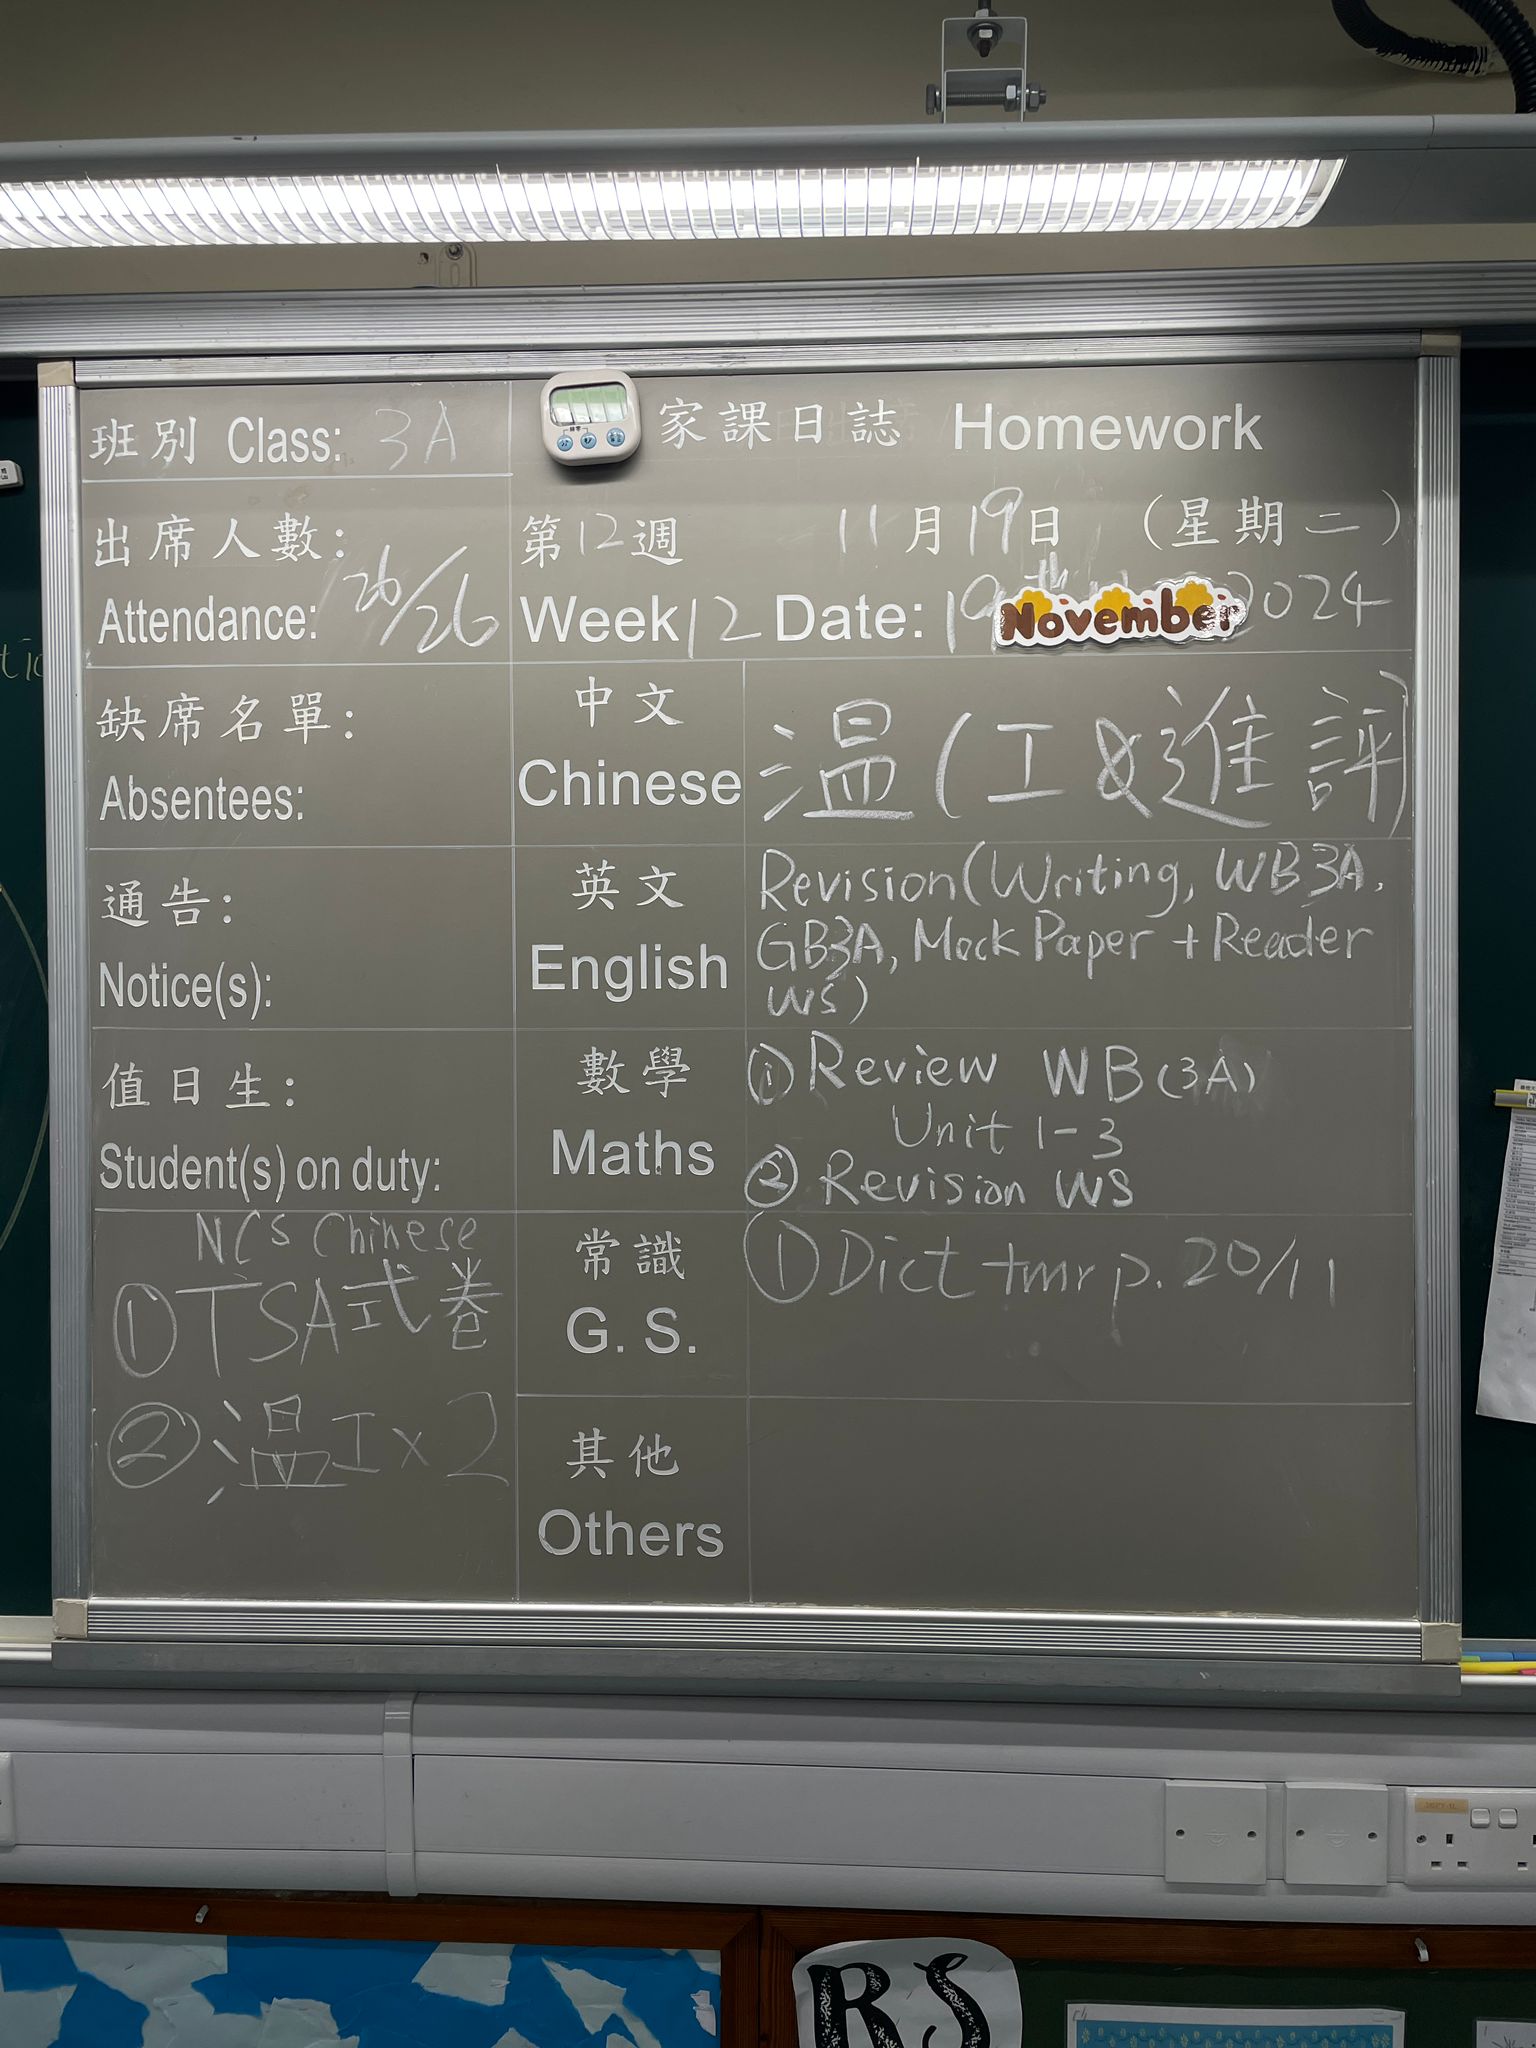 班別 Class: 3A
家課日誌 Homework
出席人數:
Attendance: 26/26
第12週 11月19日 (星期二)
Week 12 Date: 19th November 2024
缺席名單:
Absentees:
中文
Chinese
温(工&進評)
通告:
Notice(s):
英文
English
Revision (Writing, WB3A,
GB3A, Mock Paper + Reader
WS)
值日生:
Student(s) on duty:
數學
Maths
① Review WB (3A)
Unit 1-3
② Revision WS
NCS Chinese
① TSA式卷
② 温工x2
常識
G. S.
① Dict tmr p. 20/11
其他
Others
RS